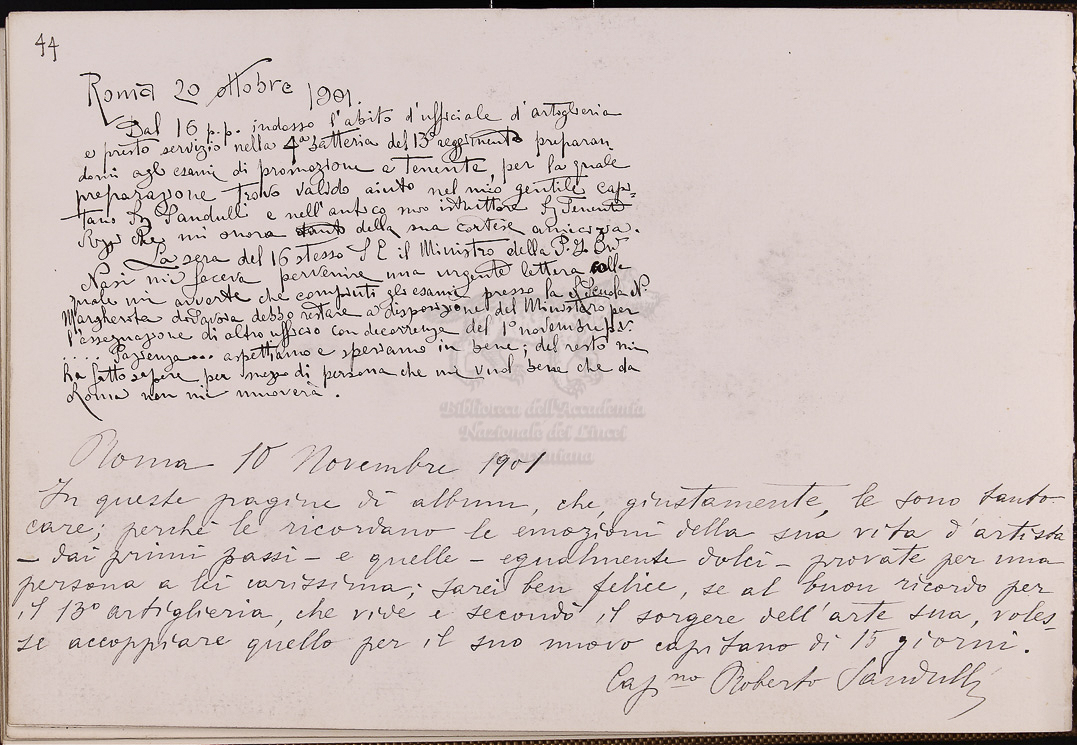 44
Roma 20 ottobre 1901.
Dal 16 p.p. indosso l'abito d'ufficiale d'artiglieria
e presto servizio nella 4ª batteria del 13º reggimento preparan
domi agli esami di promozione a Tenente, per la quale
preparazione trovo valido aiuto nel mio gentile capi=
tano Sandulli e nell'antico mio istruttore Tenente
che mi onora tanto della sua cortese amicizia.
La sera del 16 stesso S E il Ministro della P. I. On
Nasi mi faceva pervenire una urgente lettera colla
quale mi avverte che compiuti gli esami presso la Scuola N.
Margherita debbo restare a disposizione del Ministero per
l'assegnazione di altro ufficio con decorrenza del 1º novembre p.v.
.... Pazienza... aspettiamo e speriamo in bene; del resto mi
ha fatto sapere per mezzo di persona che mi vuol bene che da
Roma non mi muoverà.
Biblioteca dell'Accademia
Nazionale dei Lincei
e Corsiniana
Roma 10 Novembre 1901
In queste pagine di album, che, giustamente, le sono tanto
care; perchè le ricordano le emozioni della sua vita d'artista
– dai primi passi – e quelle – egualmente dolci – provate per una
persona a lei carissima; sarei ben felice, se al buon ricordo per
il 13º artiglieria, che vide e secondò il sorgere dell'arte sua, voles_
se accoppiare quello per il suo nuovo capitano di 15 giorni.
Cap.no Roberto Sandulli